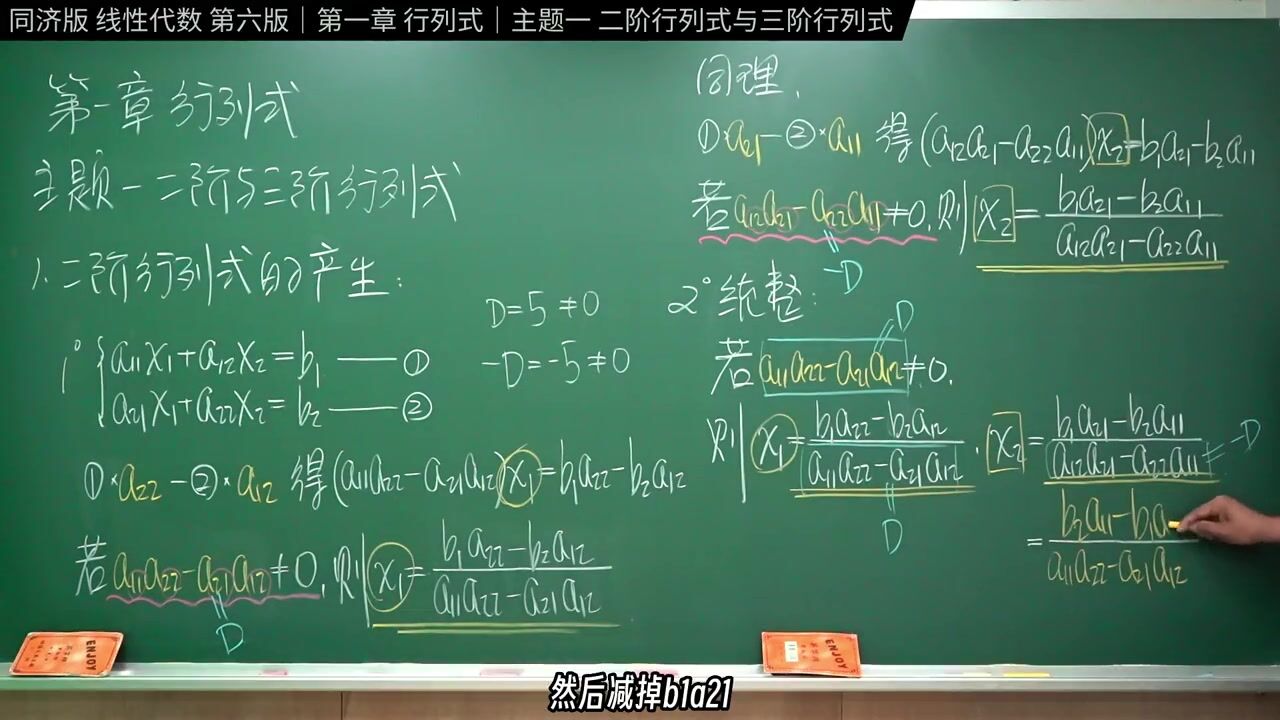 同济版 线性代数 第六版｜第一章 行列式｜主题一 二阶行列式与三阶行列式
第一章 行列式
主题一 二阶与三阶行列式
1. 二阶行列式的产生:
1° { a₁₁x₁+a₁₂x₂=b₁ —— ①
a₂₁x₁+a₂₂x₂=b₂ —— ②
D=5≠0
-D=-5≠0
①·a₂₂-②·a₁₂ 得(a₁₁a₂₂-a₂₁a₁₂)x₁=b₁a₂₂-b₂a₁₂
若a₁₁a₂₂-a₂₁a₁₂≠0, 则 x₁= b₁a₂₂-b₂a₁₂ / a₁₁a₂₂-a₂₁a₁₂
D
同理,
①·a₂₁-②·a₁₁ 得(a₁₂a₂₁-a₂₂a₁₁)x₂=b₁a₂₁-b₂a₁₁
若a₁₂a₂₁-a₂₂a₁₁≠0, 则 x₂= b₁a₂₁-b₂a₁₁ / a₁₂a₂₁-a₂₂a₁₁
-D
2° 统整:
D
若 a₁₁a₂₂-a₂₁a₁₂≠0,
则 x₁= b₁a₂₂-b₂a₁₂ / a₁₁a₂₂-a₂₁a₁₂ , x₂= b₁a₂₁-b₂a₁₁ / a₁₂a₂₁-a₂₂a₁₁ = -D
D
= b₂a₁₁-b₁a / a₁₁a₂₂-a₂₁a₁₂
ENJOY
ENJOY
然后减掉b1a21